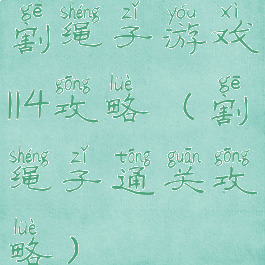 gē shéng zǐ yóu xì
割绳子游戏
gōng lüè gē
114攻略（割
shéng zǐ tōng guān gōng
绳子通关攻
lüè
略）